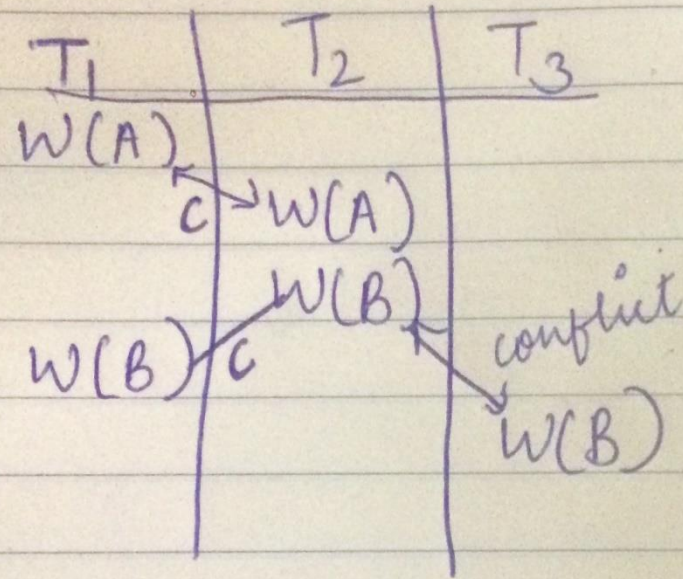 T1 T2 T3
W(A)
C W(A)
W(B) conflict
W(B) C
W(B)